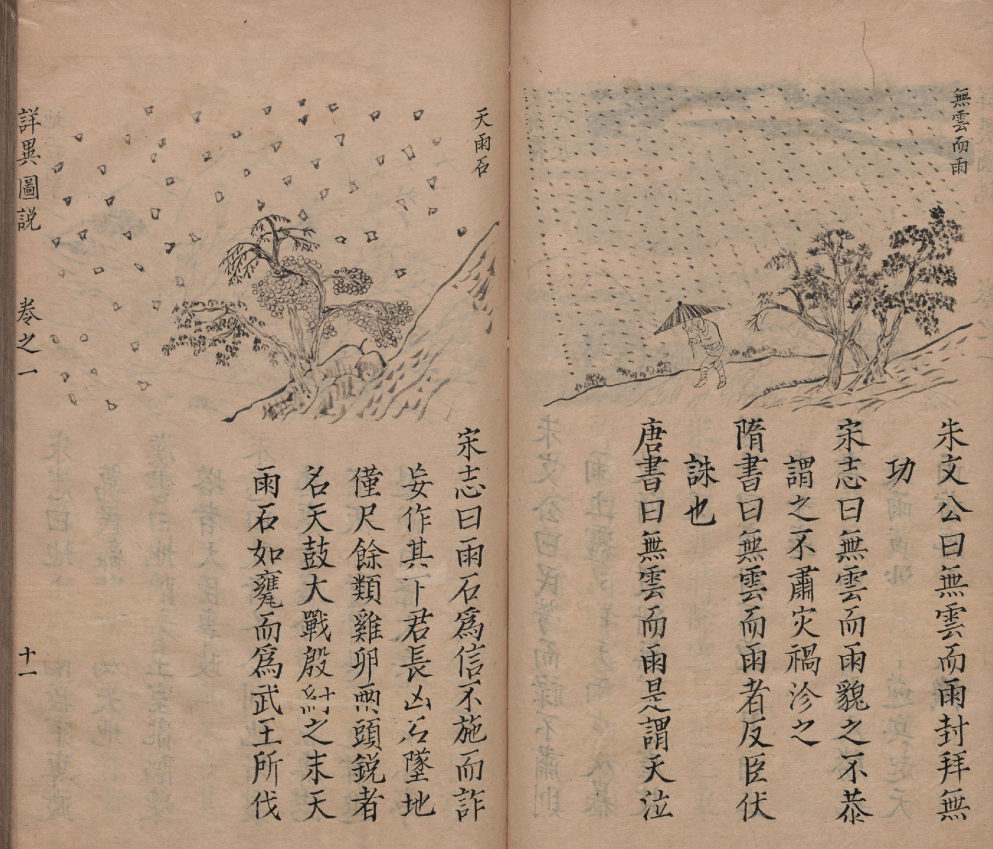 無雲而雨
朱文公曰無雲而雨封拜無
功
宋志曰無雲而雨貌之不恭
謂之不肅灾禍沴之
隋書曰無雲而雨者反臣伏
誅也
唐書曰無雲而雨是謂天泣
天雨石
宋志曰雨石爲信不施而詐
妄作其下君長凶石墜地
僅尺餘類雞卵兩頭鋭者
名天鼓大戰殷紂之末天
雨石如甕而爲武王所伐
詳異圖説
卷之一
十一